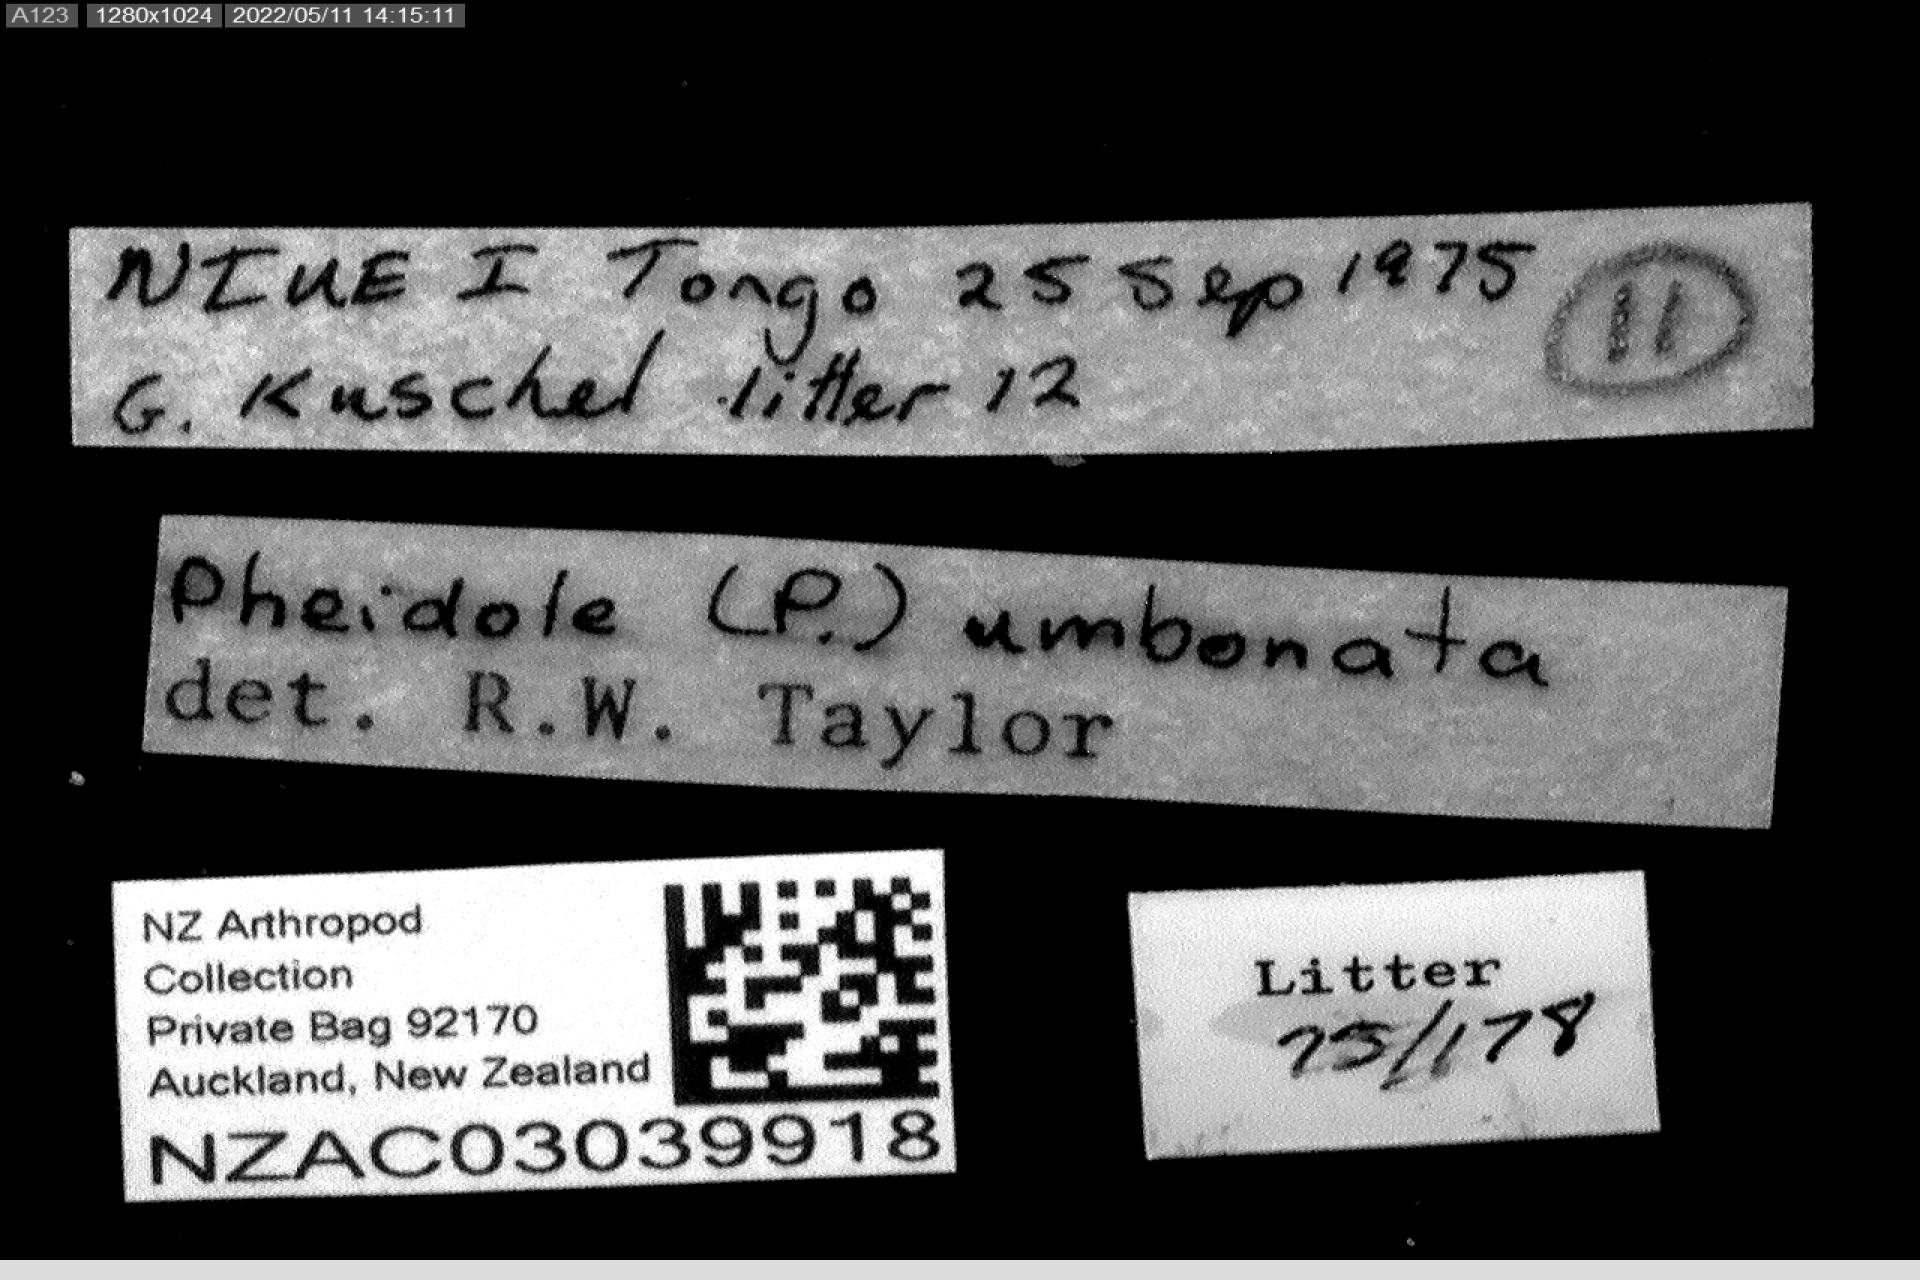 A123 1280x1024 2022/05/11 14:15:11
NIUE I Tongo 25 Sep 1975 11
G. Kuschel litter 12
Pheidole (P.) umbonata
det. R.W. Taylor
NZ Arthropod
Collection
Private Bag 92170
Auckland, New Zealand
NZAC03039918
Litter
75/178